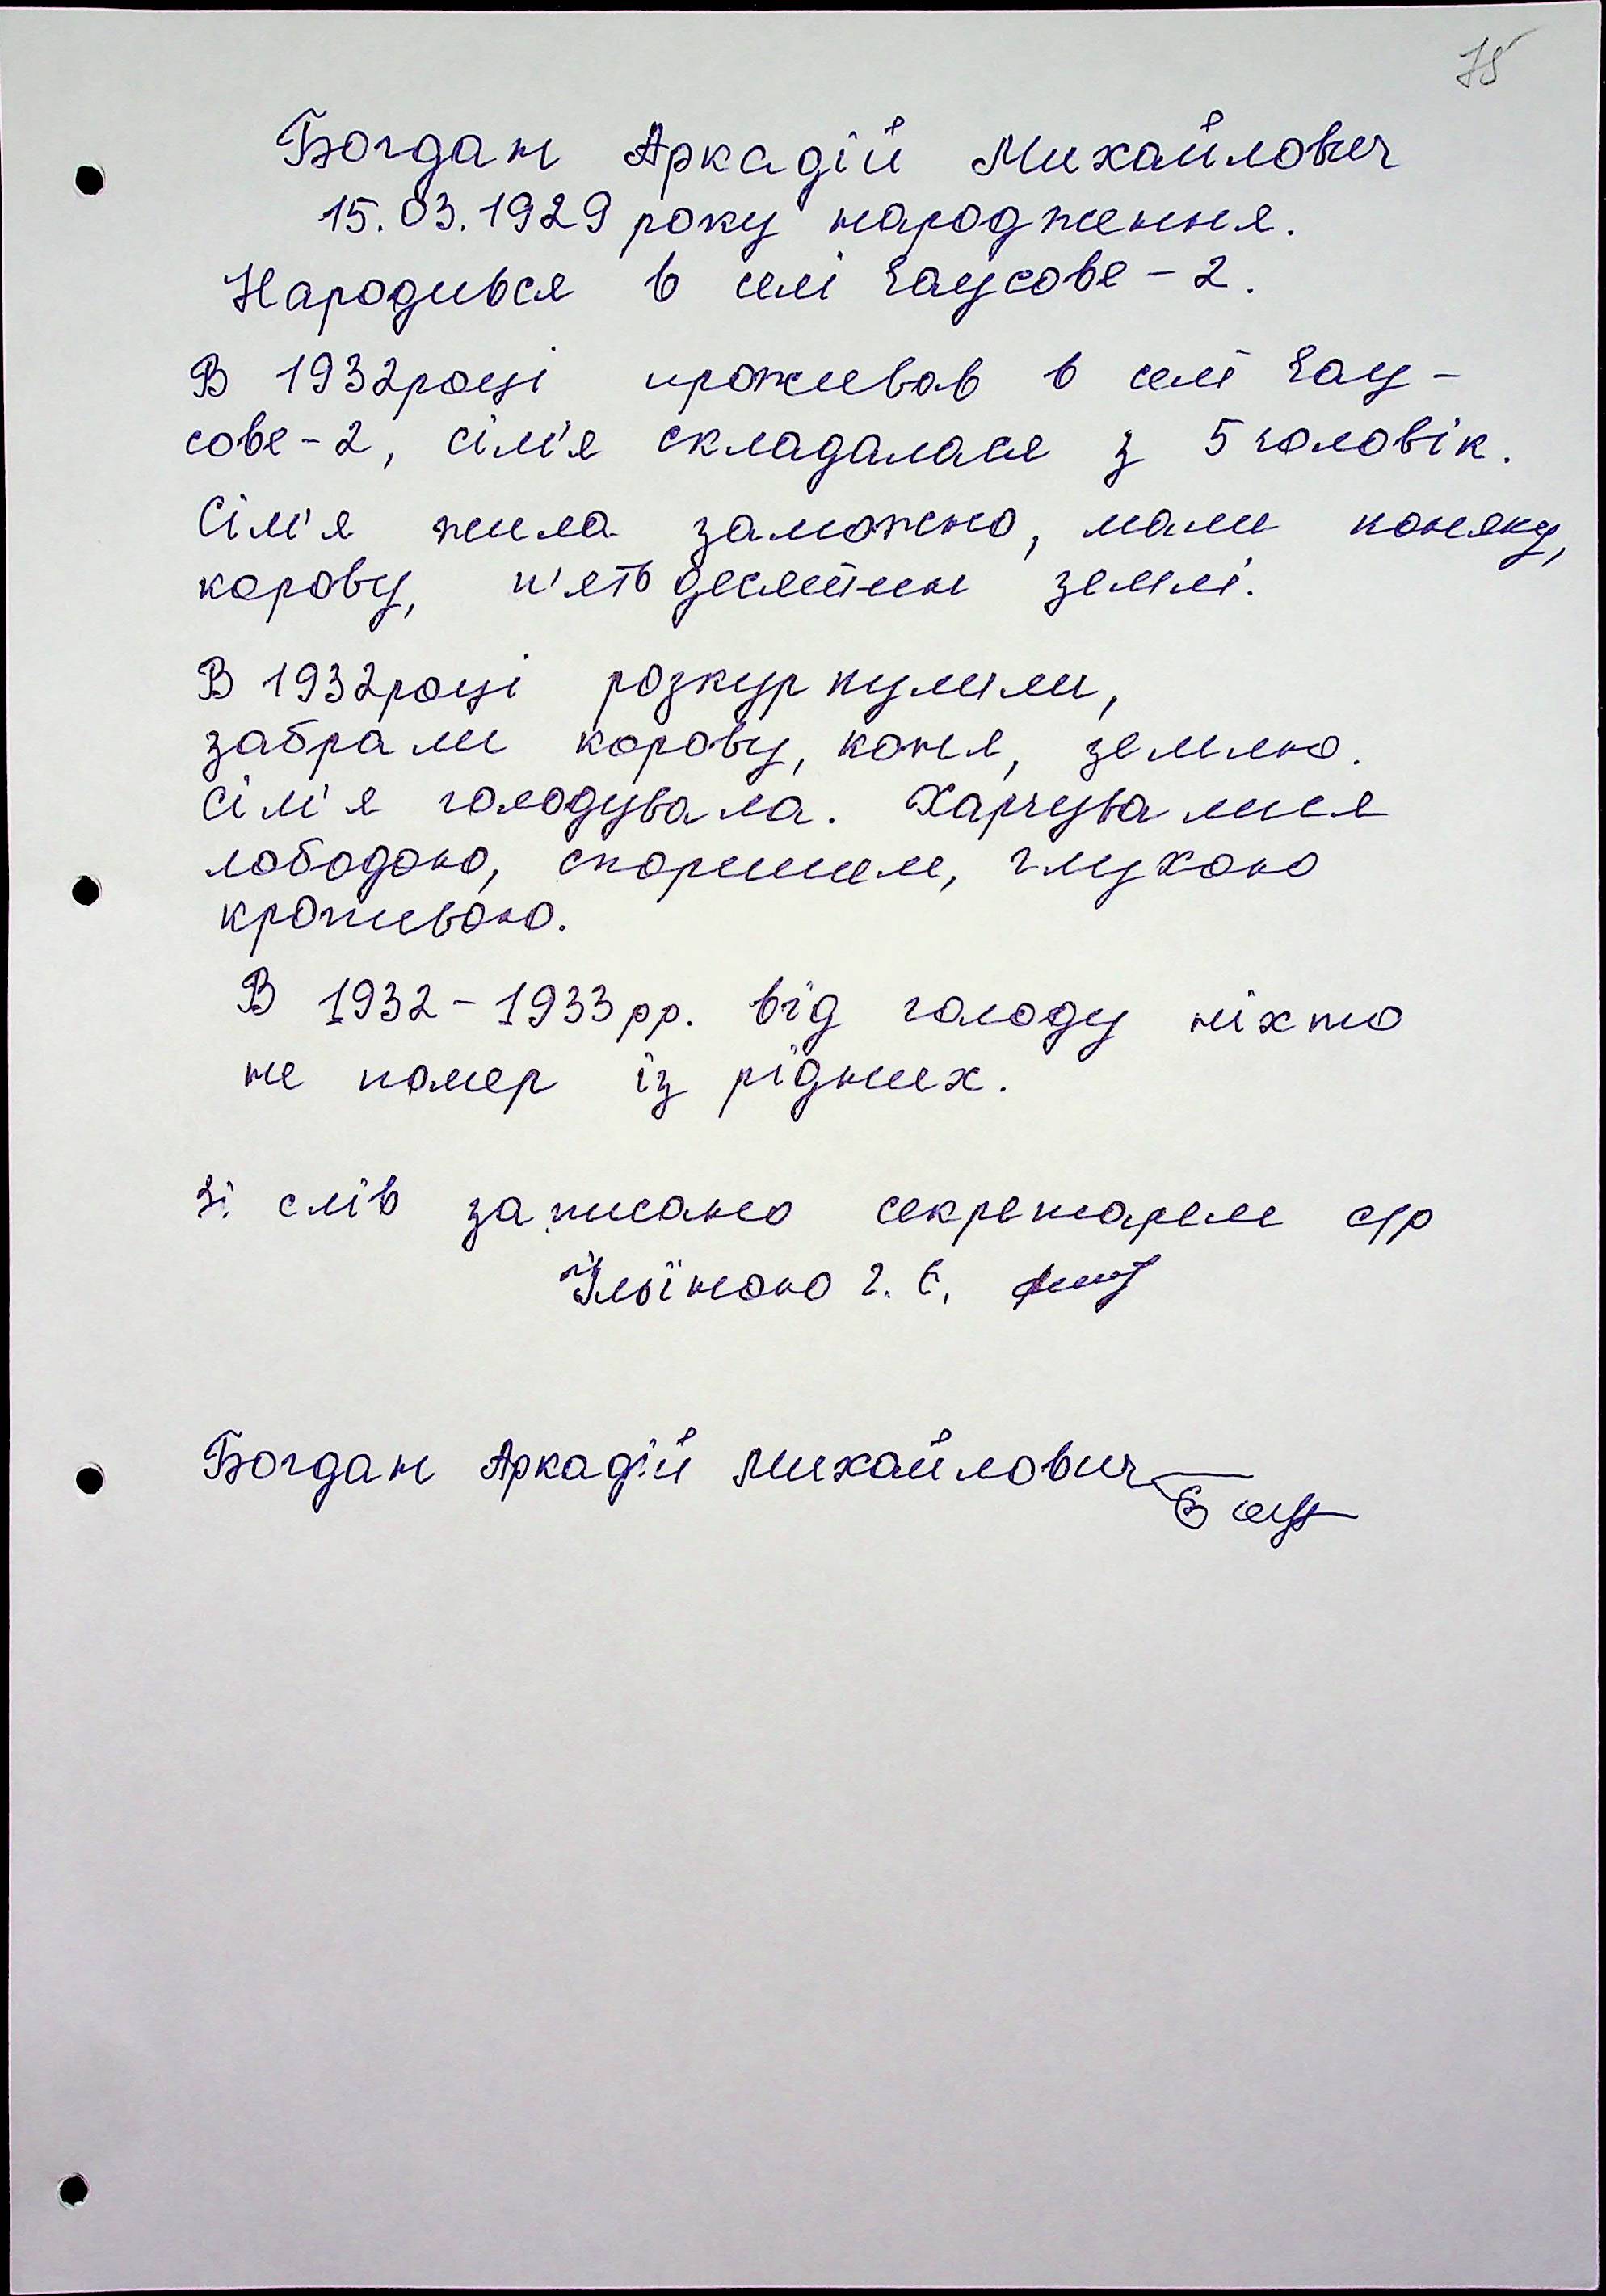 75
Богдан Аркадій Михайлович
15.03.1929 року народження.
Народився в селі Чаусове-2.
В 1932 році проживав в селі Чау-
сове-2, сім'я складалася з 5 чоловік.
Сім'я жила заможно, мали коняку,
корову, п'ять десятин землі.
В 1932 році розкуркулили,
забрали корову, коня, землю.
Сім'я голодувала. Харчувалися
лободою, споришем, глухою
кропивою.
В 1932-1933 рр. від голоду ніхто
не помер із рідних.
Зі слів записано секретарем с/р
Ільїною Г. Є.
Богдан Аркадій Михайлович